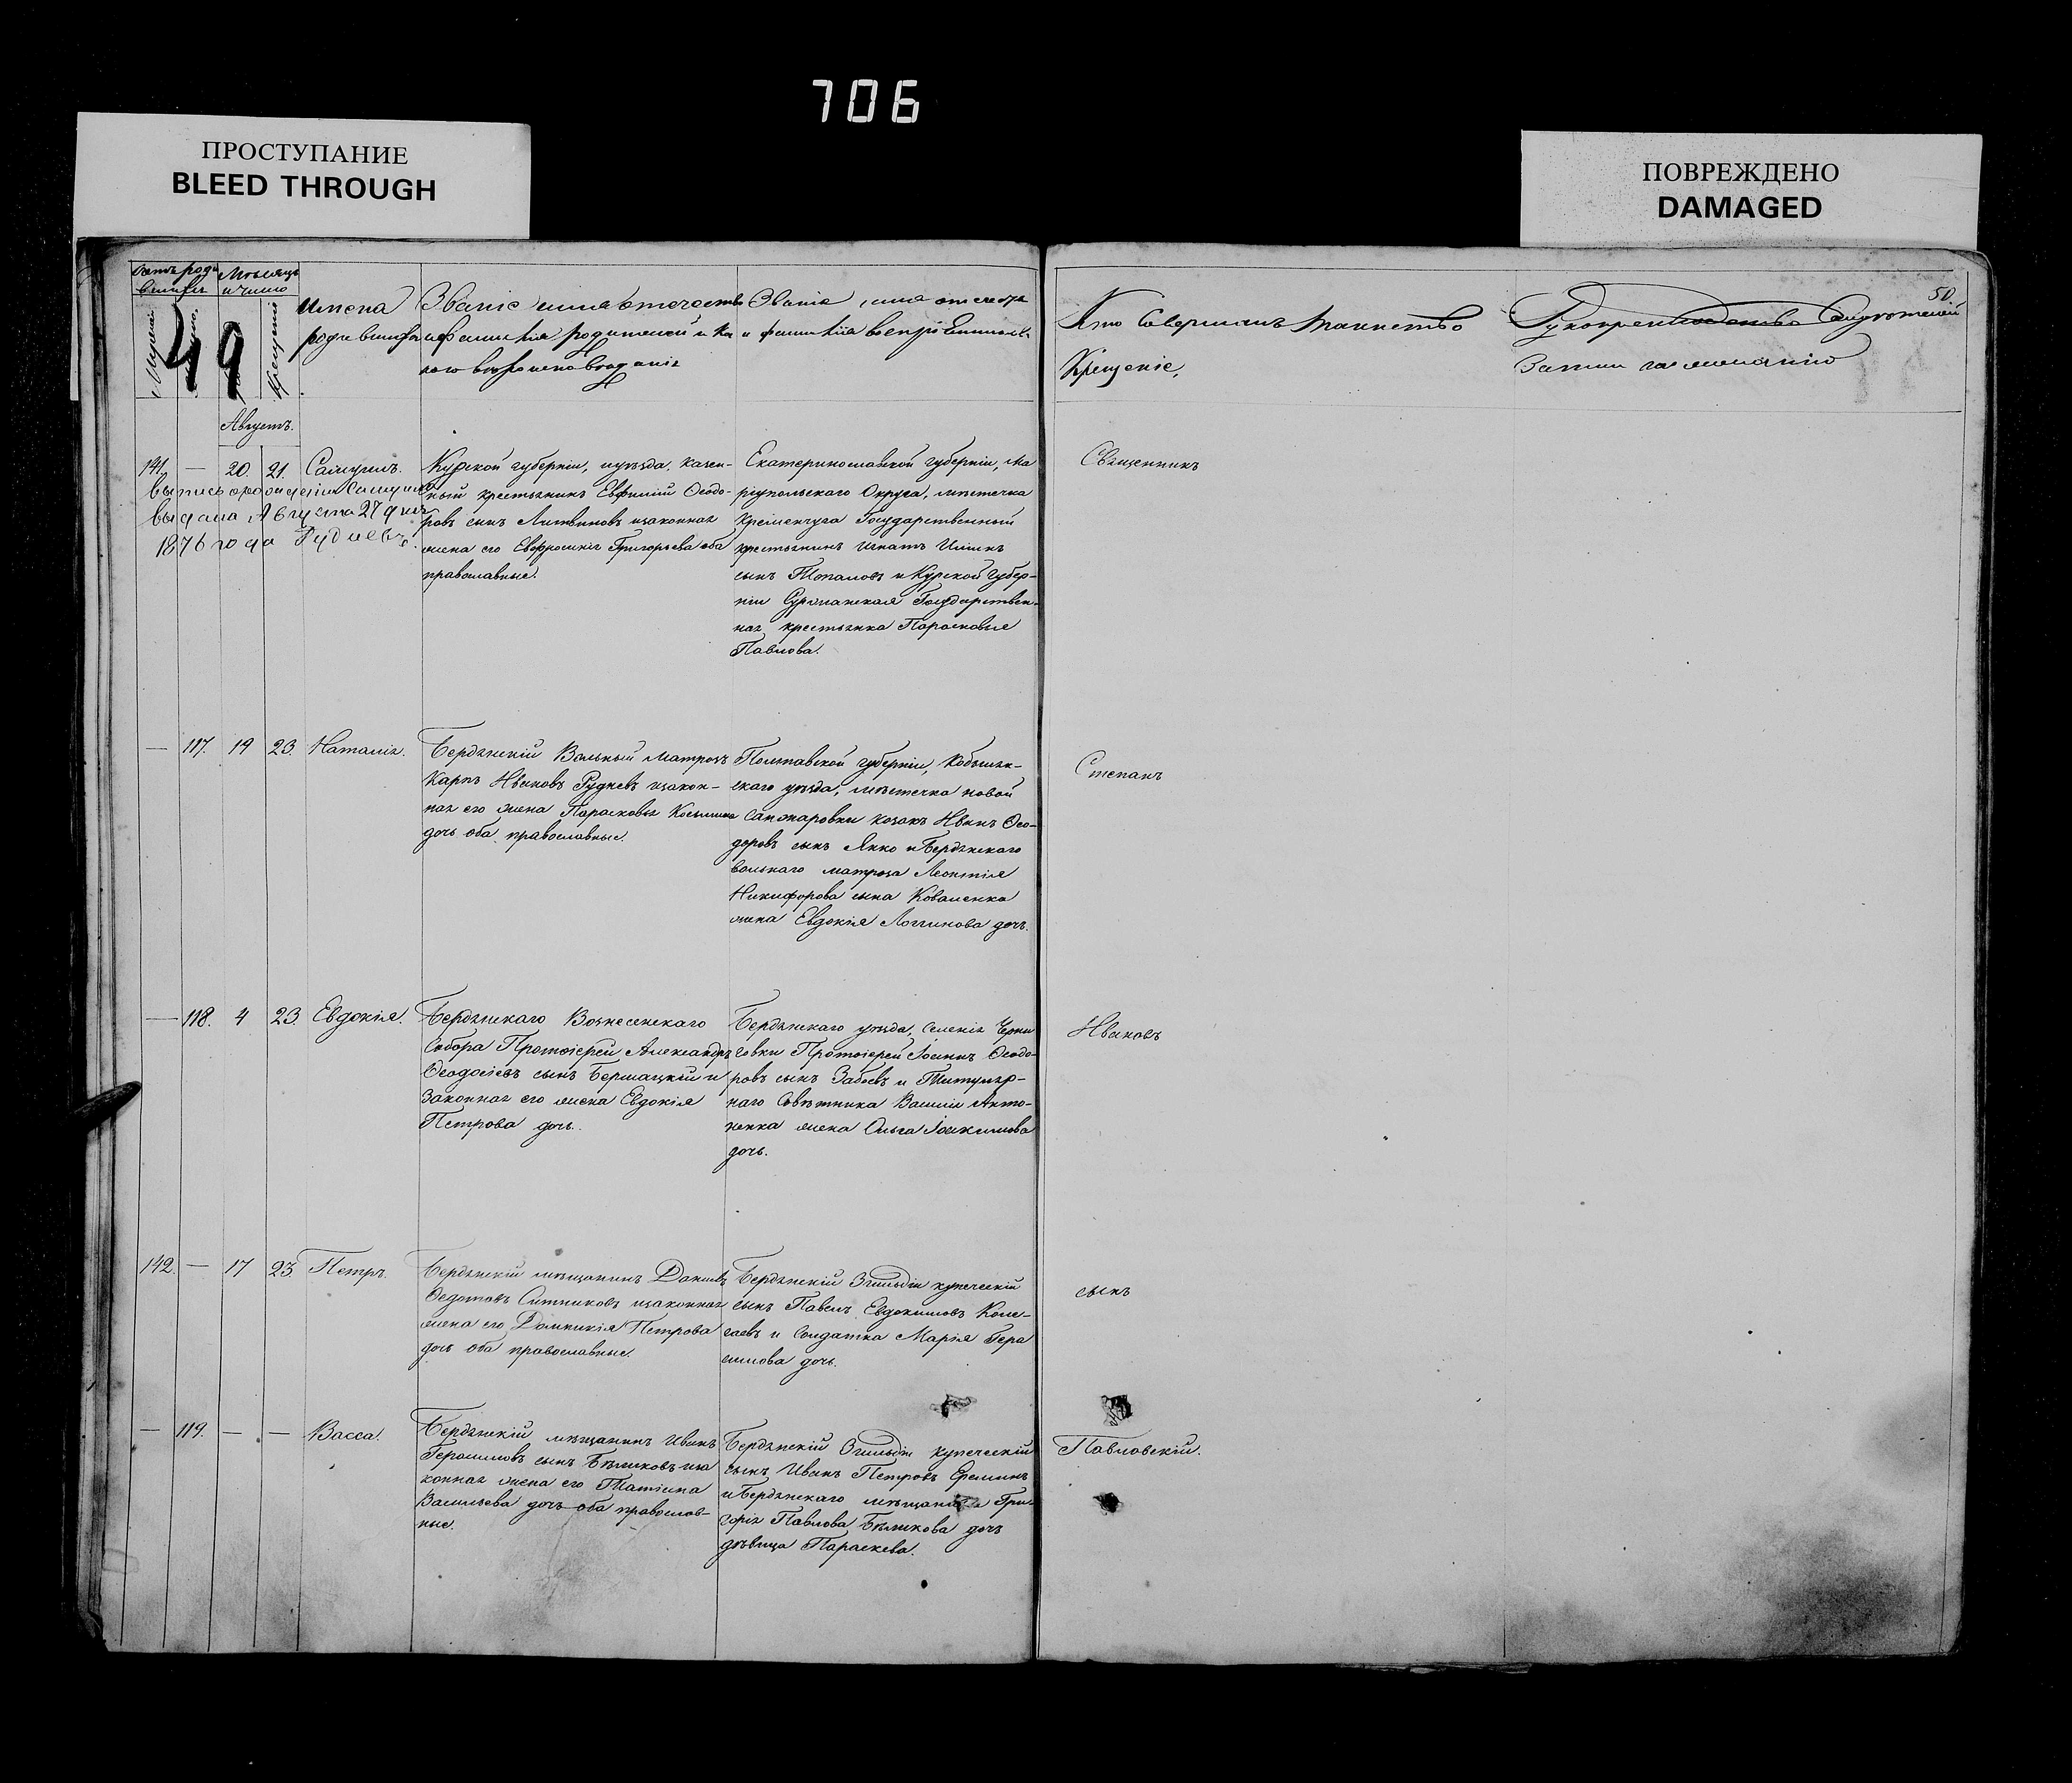 706
ПРОСТУПАНИЕ
BLEED THROUGH
ПОВРЕЖДЕНО
DAMAGED
50.
Счетъ роди
вшихся
Мѣсяцъ
и число
Крещенія
49
Имена
родившихся
Званіе имя отечество
и фамилія родителей и ка
кого вѣроисповѣданія
Званіе, имя отечество
и фамилія воспріемников.
Кто совершалъ таинство
Крещеніе,
Рукоприкладство свидѣтелей
записи по желанію
Августъ.
141. — 20. 21. Самуилъ.
выпись о рожденіи Самуила
выдана Августа 27 дня
1876 года Рудневъ
Курской губерніи, и уѣзда, казен-
ный крестьянинъ Евфимій Ѳеодо-
ровъ сынъ Литвиновъ и законная
жена его Евфросинія Григорьева оба
православные.
Екатеринославской губерніи, Ма
ріупольскаго Округа, мѣстечка
Кременчуга Государственный
крестьянинъ Игнатъ Ильинъ
сынъ Топаловъ и Курской губер-
ніи Государствен-
ная крестьянка Парасковія
Павлова.
Священникъ
— 117. 19 23. Наталія.
Бердянскій Вольный матрозъ
Карпъ Ивановъ Рудневъ и закон-
ная его жена Парасковья Косьмина
дочь оба православные.
Полтавской губерніи, Кобыляк-
скаго уѣзда, мѣстечка новой
Санжаровки козакъ Иванъ Ѳео-
доровъ сынъ Янко и Бердянскаго
вольнаго матроза Леонтія
Никифорова сына Коваленка
жена Евдокія Логгинова дочь.
Степанъ
— 118. 4 23. Евдокія.
Бердянскаго Вознесенскаго
Собора Протоіерей Александръ
Ѳеодосіевъ сынъ и
законная его жена Евдокія
Петрова дочь.
Бердянскаго уѣзда, селенія Черни
говки Протоіерей Іоаннъ Ѳеодо-
ровъ сынъ Забаевъ и Титуляр-
наго Совѣтника Василія Анто-
ненка жена Ольга Іоакимова
дочь.
Ивановъ
142. — 17 23. Петръ.
Бердянскій мѣщанинъ Даніилъ
Ѳедотовъ Ситниковъ и законная
жена его Домникія Петрова
дочь оба православные.
Бердянскій 3 гильдіи купеческій
сынъ Павелъ Евдокимовъ Коле-
саевъ и Солдатка Марія Гера
симова дочь.
сынъ
— 119. — — Васса.
Бердянскій мѣщанинъ Иванъ
Герасимовъ сынъ Бѣликовъ и за
конная жена его Татіана
Васильева дочь оба православ-
ные.
Бердянскій 3 гильдіи купеческій
сынъ Иванъ Петровъ Ереминъ
и Бердянскаго мѣщанина Гри-
горія Павлова Бѣликова дочь
дѣвица Параскева.
Павловскій.